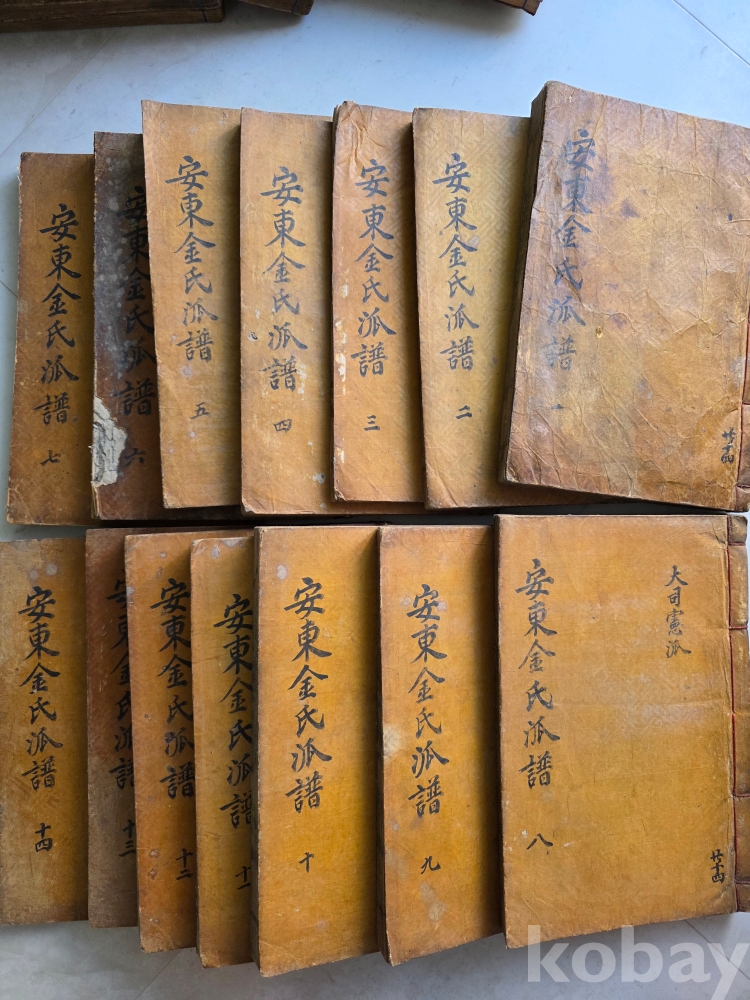 安東金氏派譜 一
共十四
安東金氏派譜 二
安東金氏派譜 三
安東金氏派譜 四
安東金氏派譜 五
安東金氏派譜 六
安東金氏派譜 七
大司憲派
安東金氏派譜 八
共十四
安東金氏派譜 九
安東金氏派譜 十
安東金氏派譜 十一
安東金氏派譜 十二
安東金氏派譜 十三
安東金氏派譜 十四
kobay